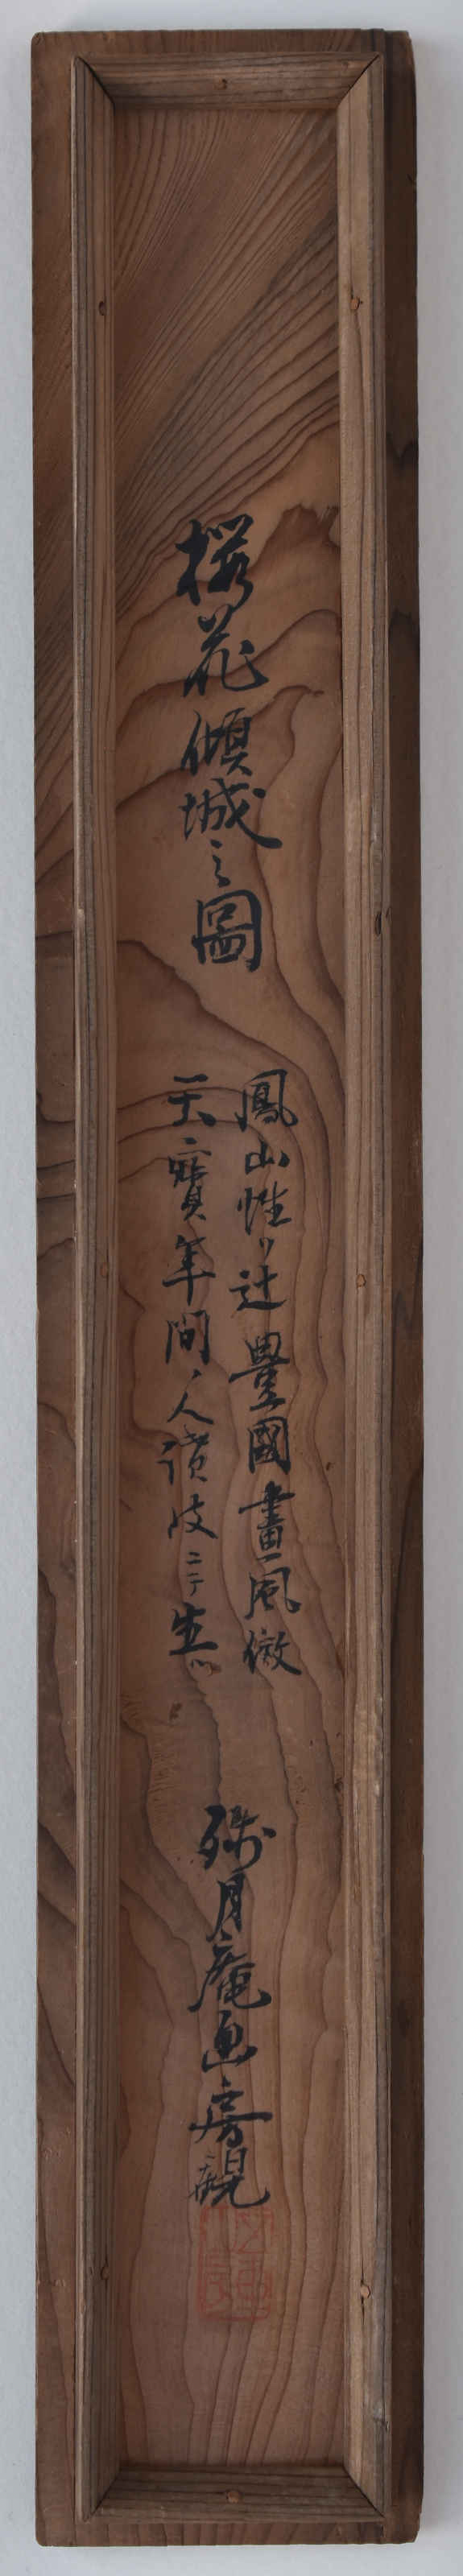 桜花傾城之圖
鳳山性ハ辻豊國畫風倣
天寶年間ノ人讃岐ニテ生ル
月庵画房観